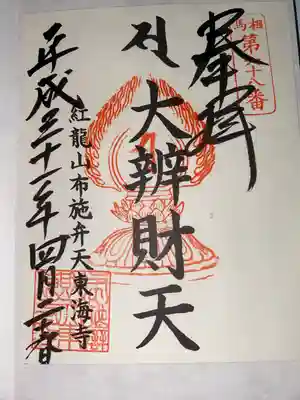 奉拝
相馬
第六十八番
大辨財天
紅龍山布施弁天東海寺
平成三十一年四月二十春